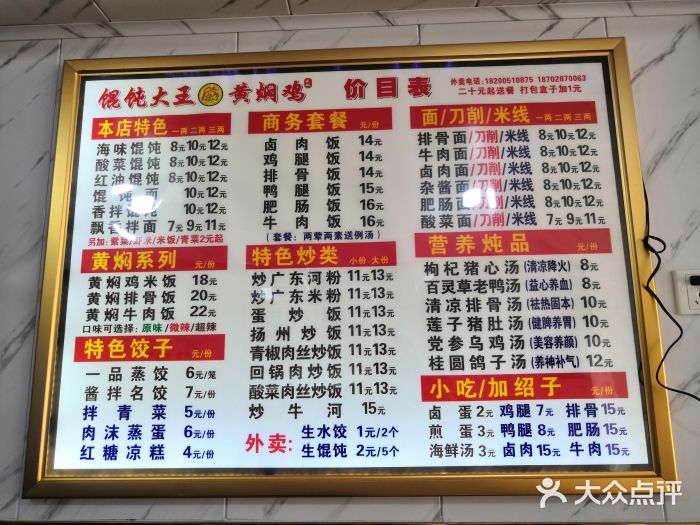 馄饨大王 黄焖鸡 价目表
外卖电话:18200510875 18702870063
二十元起送餐 打包盒子加1元
本店特色 一两 二两 三两
海味馄饨 8元10元12元
酸菜馄饨 8元10元12元
红油馄饨 8元10元12元
馄饨面 10元12元
香拌馄饨 10元12元
飘香拌面 7元 9元11元
另加:紫菜/虾米/米饭/青菜2元起
黄焖系列 元/份
黄焖鸡米饭 18元
黄焖排骨饭 20元
黄焖牛肉饭 22元
口味可选择:原味/微辣/超辣
特色饺子 元/份
一品蒸饺 6元/笼
酱拌名饺 7元/份
拌青菜 5元/份
肉沫蒸蛋 6元/份
红糖凉糕 4元/份
商务套餐 元/份
卤肉饭 14元
鸡腿饭 14元
排骨饭 14元
鸭腿饭 15元
肥肠饭 16元
牛肉饭 16元
(套餐:两荤两素送例汤)
特色炒类 小份 大份
炒广东河粉 11元13元
炒广东米粉 11元13元
蛋炒饭 11元13元
扬州炒饭 11元13元
青椒肉丝炒饭 11元13元
回锅肉炒饭 11元13元
酸菜肉丝炒饭 11元13元
炒牛河 15元
外卖: 生水饺 1元/2个
生馄饨 2元/5个
面/刀削/米线 一两 二两 三两
排骨面/刀削/米线 8元10元12元
牛肉面/刀削/米线 8元10元12元
卤肉面/刀削/米线 8元10元12元
杂酱面/刀削/米线 8元10元12元
肥肠面/刀削/米线 8元10元12元
酸菜面/刀削/米线 7元 9元11元
营养炖品 元/份
枸杞猪心汤(清凉降火) 8元
百灵草老鸭汤(益心养血) 8元
清凉排骨汤(祛热固本) 10元
莲子猪肚汤(健脾养胃) 10元
党参乌鸡汤(美容养颜) 10元
桂圆鸽子汤(养神补气) 12元
小吃/加绍子 元/份
卤蛋 2元 鸡腿 7元 排骨 15元
煎蛋 3元 鸭腿 8元 肥肠 15元
海鲜汤 3元 卤肉 15元 牛肉 15元
大众点评